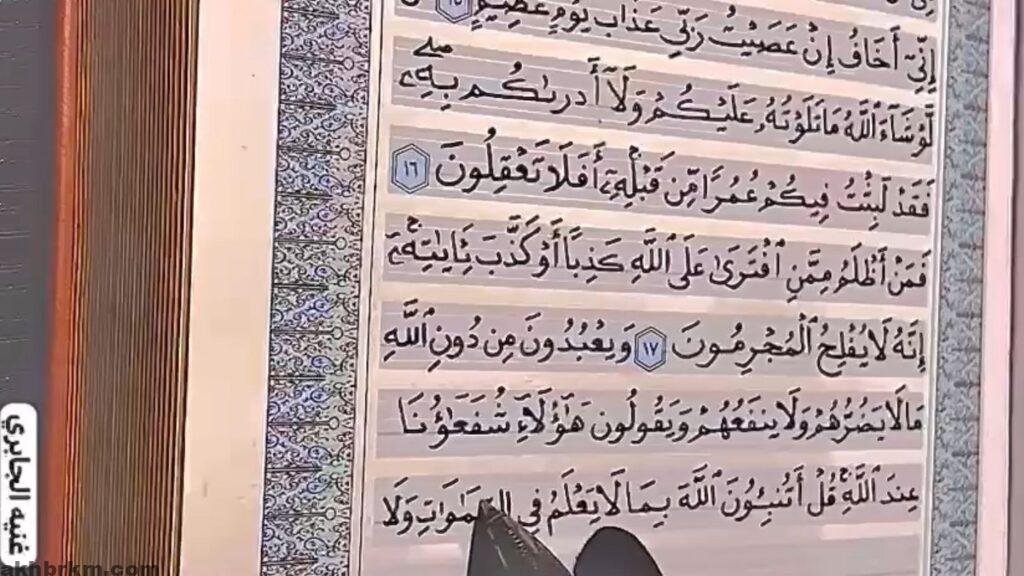 إِنِّىٓ أَخَافُ إِنْ عَصَيْتُ رَبِّى عَذَابَ يَوْمٍ عَظِيمٍ ١٥
لَّوْ شَآءَ ٱللَّهُ مَا تَلَوْتُهُۥ عَلَيْكُمْ وَلَآ أَدْرَىٰكُم بِهِۦ ۖ
فَقَدْ لَبِثْتُ فِيكُمْ عُمُرًا مِّن قَبْلِهِۦٓ ۚ أَفَلَا تَعْقِلُونَ ١٦
فَمَنْ أَظْلَمُ مِمَّنِ ٱفْتَرَىٰ عَلَى ٱللَّهِ كَذِبًا أَوْ كَذَّبَ بِـَٔايَـٰتِهِۦٓ ۚ
إِنَّهُۥ لَا يُفْلِحُ ٱلْمُجْرِمُونَ ١٧ وَيَعْبُدُونَ مِن دُونِ ٱللَّهِ
مَا لَا يَضُرُّهُمْ وَلَا يَنفَعُهُمْ وَيَقُولُونَ هَـٰٓؤُلَآءِ شُفَعَـٰٓؤُنَا
عِندَ ٱللَّهِ ۚ قُلْ أَتُنَبِّـُٔونَ ٱللَّهَ بِمَا لَا يَعْلَمُ فِى ٱلسَّمَـٰوَٰتِ وَلَا
غنيه الجابري
akhbrkm.com